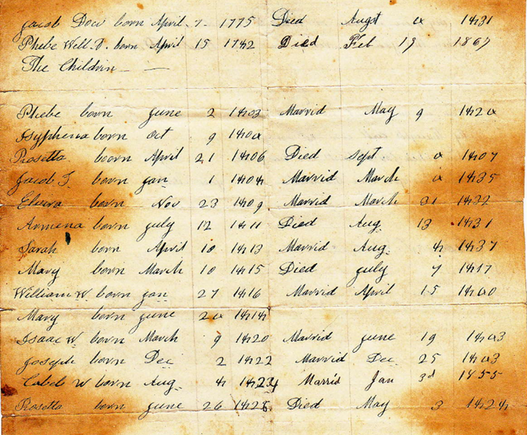 Jacob Dow born April 7 1775 Died Augst 1831
Phebe Well born April 15 1782 Died Feb 19 1867
The Children
Phebe born June 2 1803 Marrid May 9
born Oct 9
Rosetta born April 21 1806 Died Sept 1807
Jacob T. born Jan 1 Marrid March 1835
born Nov 23 1809 Marrid March 31 1832
Armena born July 12 1811 Died Aug 13 1831
Sarah born April 10 1813 Marrid Aug 4 1837
Mary born March 10 1815 Died July 7 1817
William W born Jan 27 1816 Marrid April 15
Mary born June
Isaac W. born March 9 1820 Marrid June 19
Joseph born Dec 2 1822 Marrid Dec 25
Caleb W born Aug. 4 1824 Marrid Jan 3d 1855
Rosetta born June 26 Died May 3